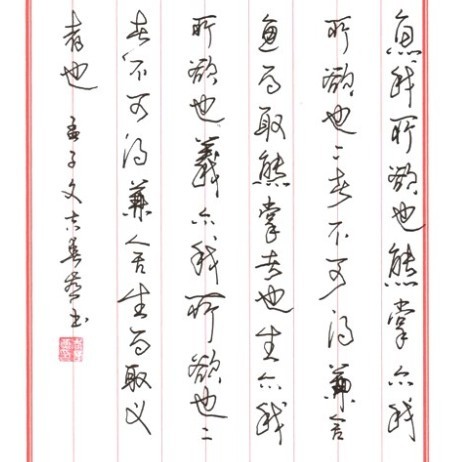 魚我所欲也熊掌亦我
所欲也二者不可得兼舍
魚而取熊掌者也生亦我
所欲也義亦我所欲也二
者不可得兼舍生而取义
者也 孟子文 书